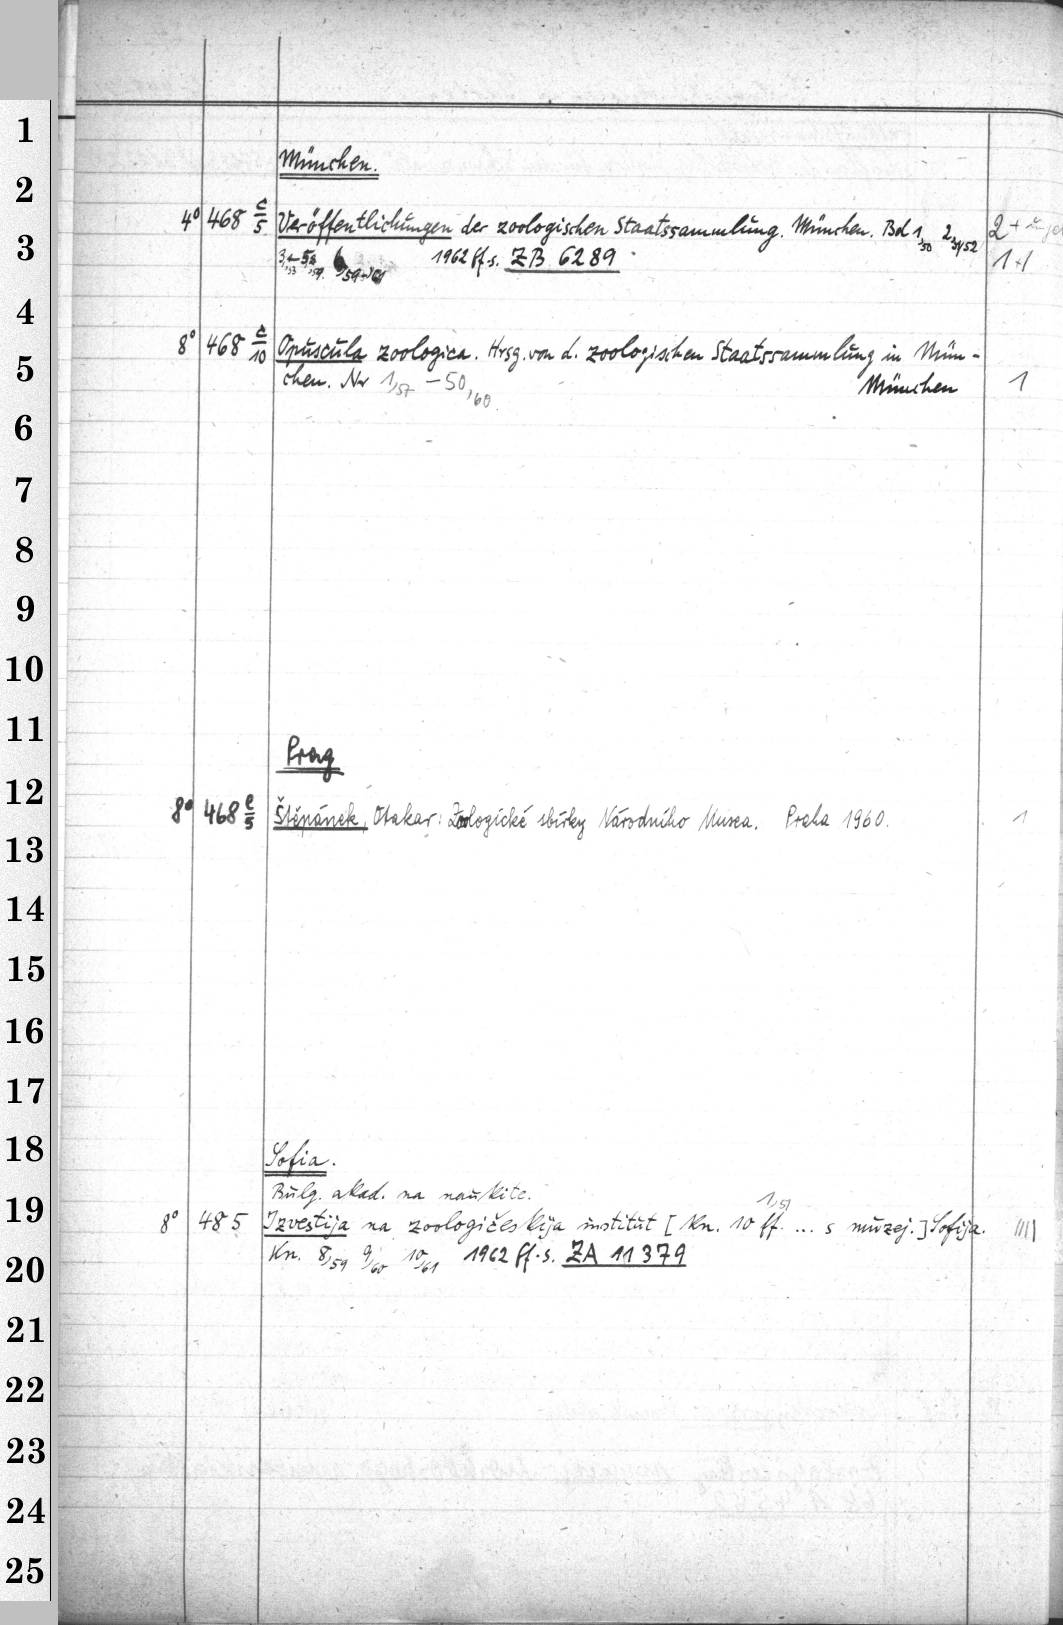 München.
4° 468 c/5 Veröffentlichungen der zoologischen Staatssammlung. München. Bd 1,50 2,51/52 2+
3,53 1962 ff. s. ZB 6289 1+1
8° 468 c/10 Opuscula zoologica. Hrsg. von d. zoologischen Staatssammlung in Mün-
chen. Nr 1,57 – 50,60 München 1
Prag
8° 468 e/5 Štěpánek, Otakar: Zoologické sbírky Národního Musea. Praha 1960. 1
Sofia.
Bulg. akad. na naukite. 1,51
8° 485 Izvestija na zoologičeskija institut [Kn. 10 ff. ... s muzej.] Sofija. IIII
Kn. 8,59 9,60 10,61 1962 ff. s. ZA 11379
1
2
3
4
5
6
7
8
9
10
11
12
13
14
15
16
17
18
19
20
21
22
23
24
25